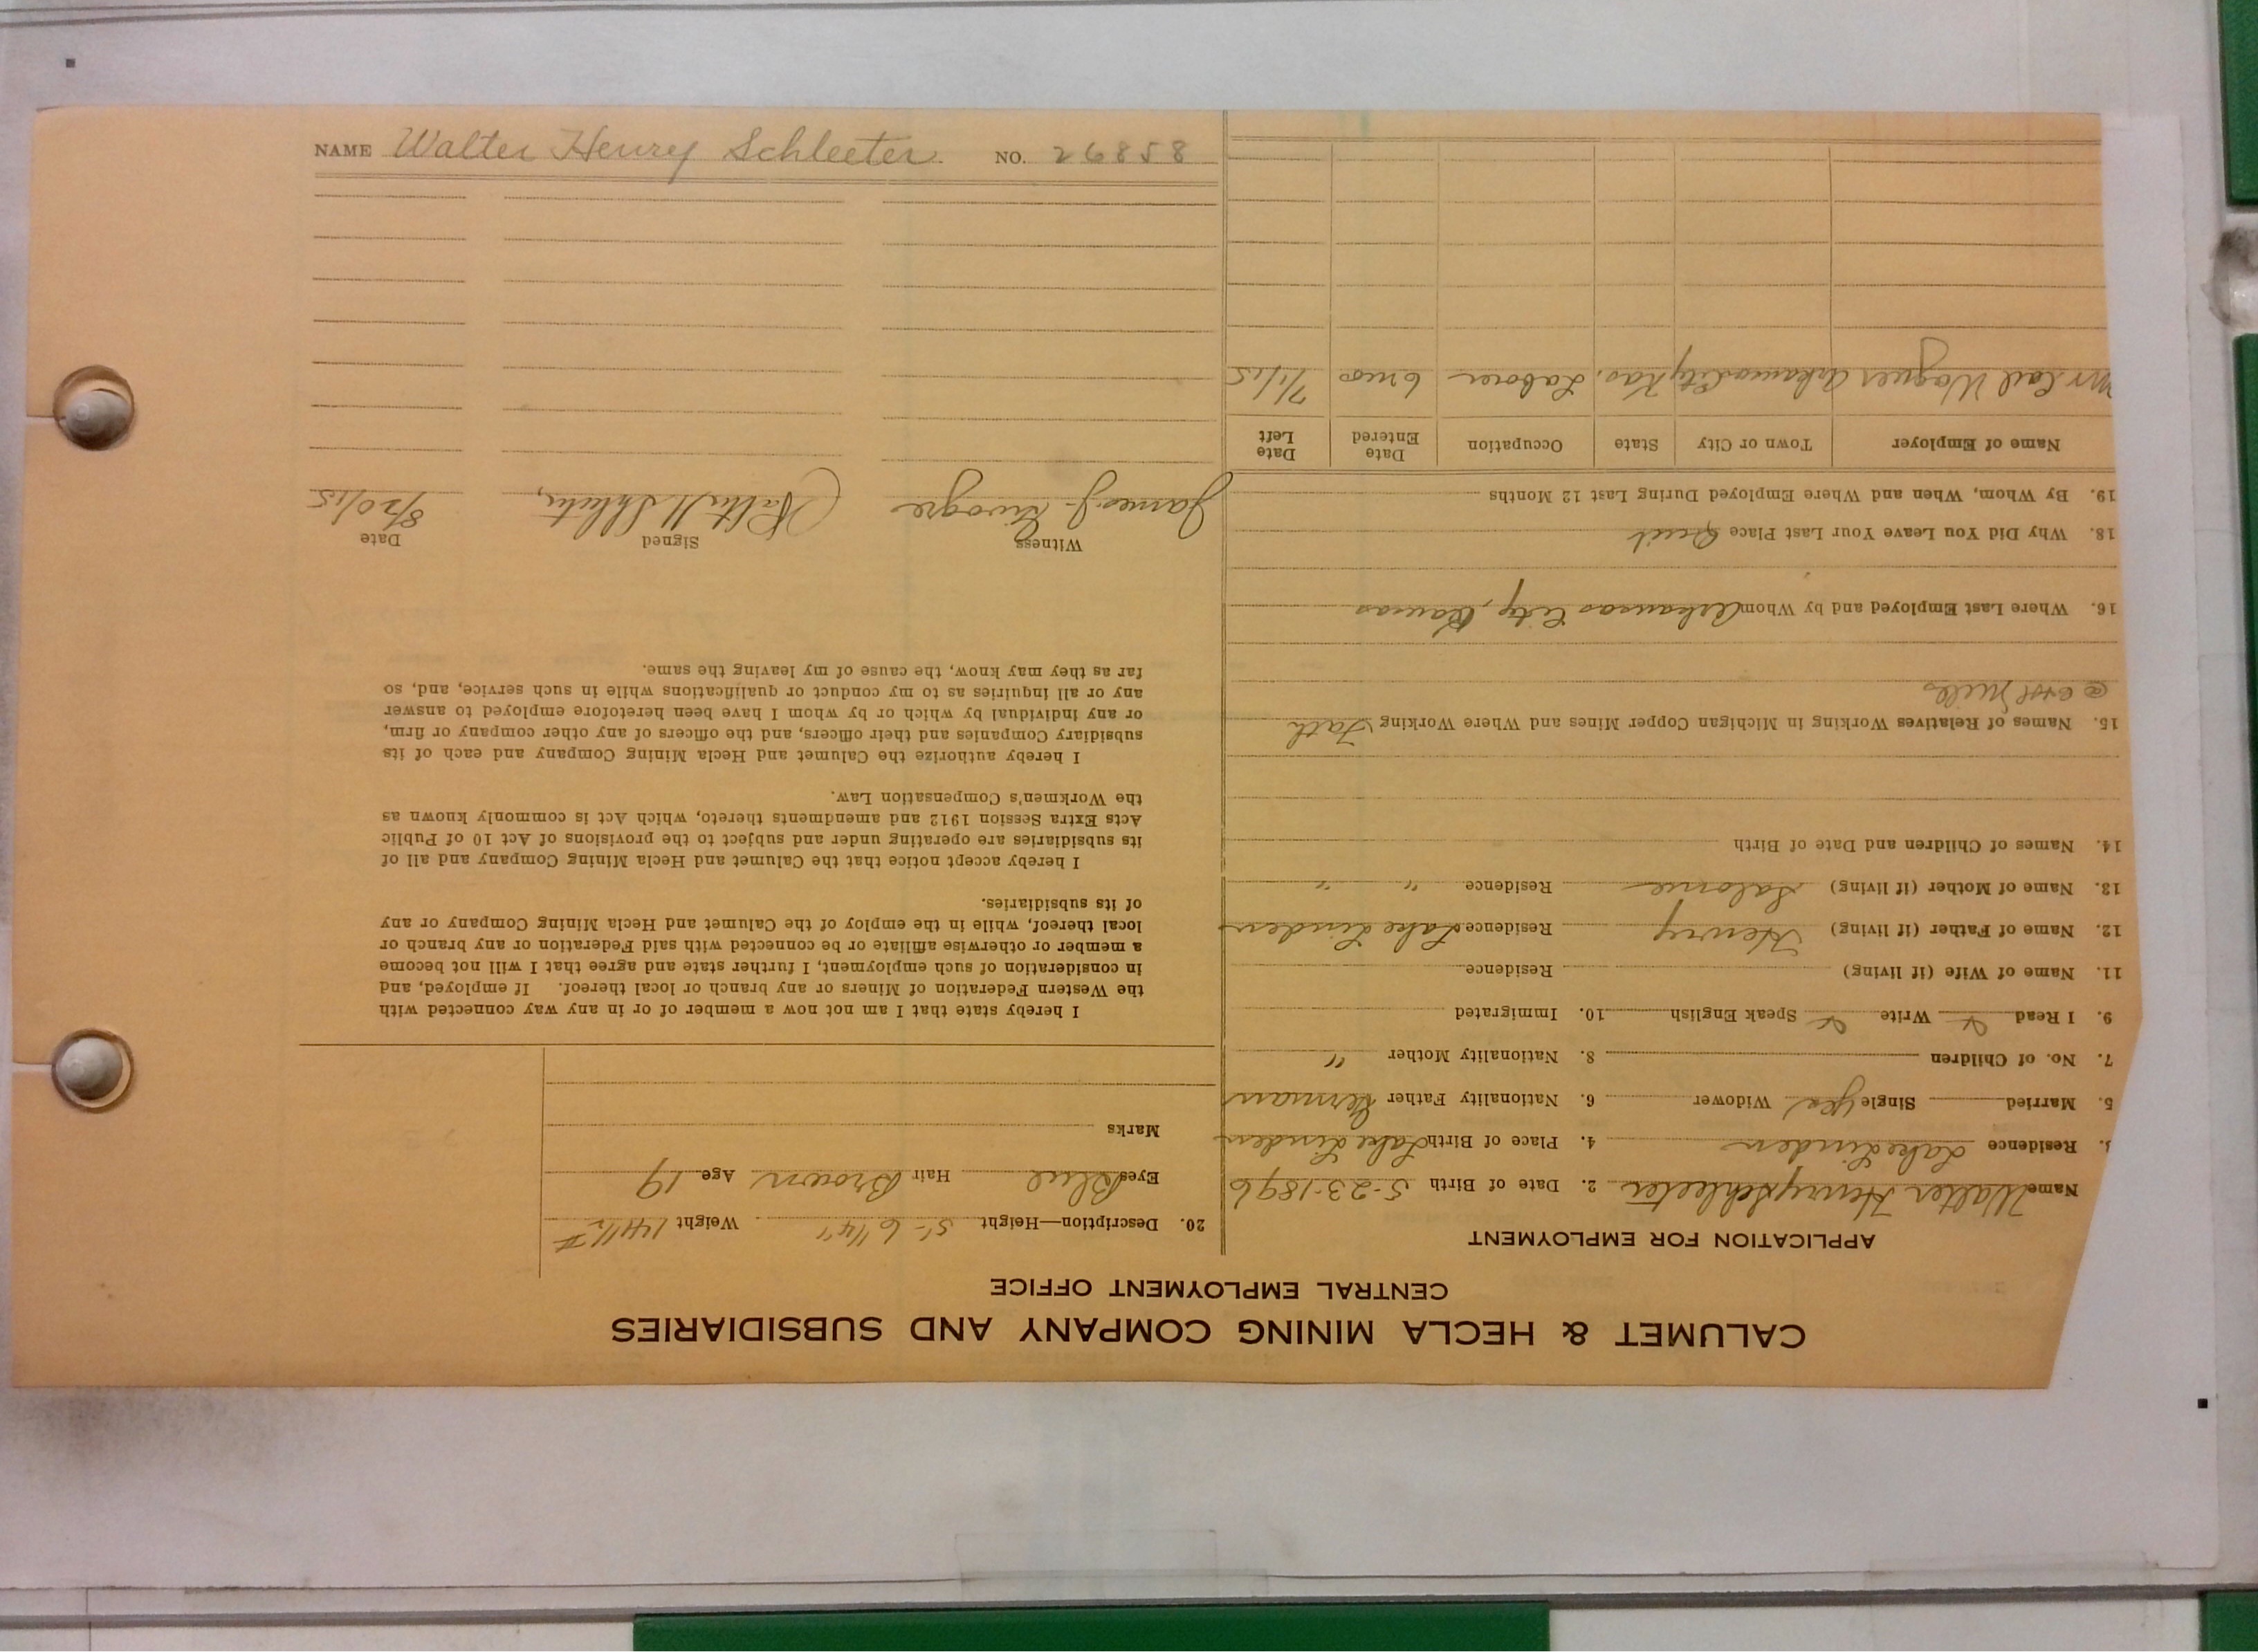 NAME Walter Henry Schleeter. NO. 26858
CALUMET & HECLA MINING COMPANY AND SUBSIDIARIES
CENTRAL EMPLOYMENT OFFICE
APPLICATION FOR EMPLOYMENT
Name Walter Henry Schleeter 2. Date of Birth 5-23-1896
3. Residence Lake Linden 4. Place of Birth Lake Linden
5. Married Single yes Widower 6. Nationality Father German
7. No. of Children 8. Nationality Mother "
9. I Read Write Speak English 10. Immigrated
11. Name of Wife (if living) Residence
12. Name of Father (if living) Henry Residence Lake Linden
13. Name of Mother (if living) Salome Residence " "
14. Names of Children and Date of Birth
15. Names of Relatives Working in Michigan Copper Mines and Where Working Fath
@ C&H Mills
16. Where Last Employed and by Whom Arkansas City, Kansas
18. Why Did You Leave Your Last Place Quit
19. By Whom, When and Where Employed During Last 12 Months
Name of Employer Town or City State Occupation Date Entered Date Left
Mr Carl Wagner Arkansas City Kas. Laborer 6 mos 7/1/15
20. Description—Height 5'-6 1/4" Weight 141 1/2 #
Eyes Blue Hair Brown Age 19
Marks
I hereby state that I am not now a member of or in any way connected with
the Western Federation of Miners or any branch or local thereof. If employed, and
in consideration of such employment, I further state and agree that I will not become
a member or otherwise affiliate or be connected with said Federation or any branch or
local thereof, while in the employ of the Calumet and Hecla Mining Company or any
of its subsidiaries.
I hereby accept notice that the Calumet and Hecla Mining Company and all of
its subsidiaries are operating under and subject to the provisions of Act 10 of Public
Acts Extra Session 1912 and amendments thereto, which Act is commonly known as
the Workmen's Compensation Law.
I hereby authorize the Calumet and Hecla Mining Company and each of its
subsidiary Companies and their officers, and the officers of any other company or firm,
or any individual by which or by whom I have been heretofore employed to answer
any or all inquiries as to my conduct or qualifications while in such service, and, so
far as they may know, the cause of my leaving the same.
Witness Signed Date
James J. Walter H. Schleeter, 8/20/15